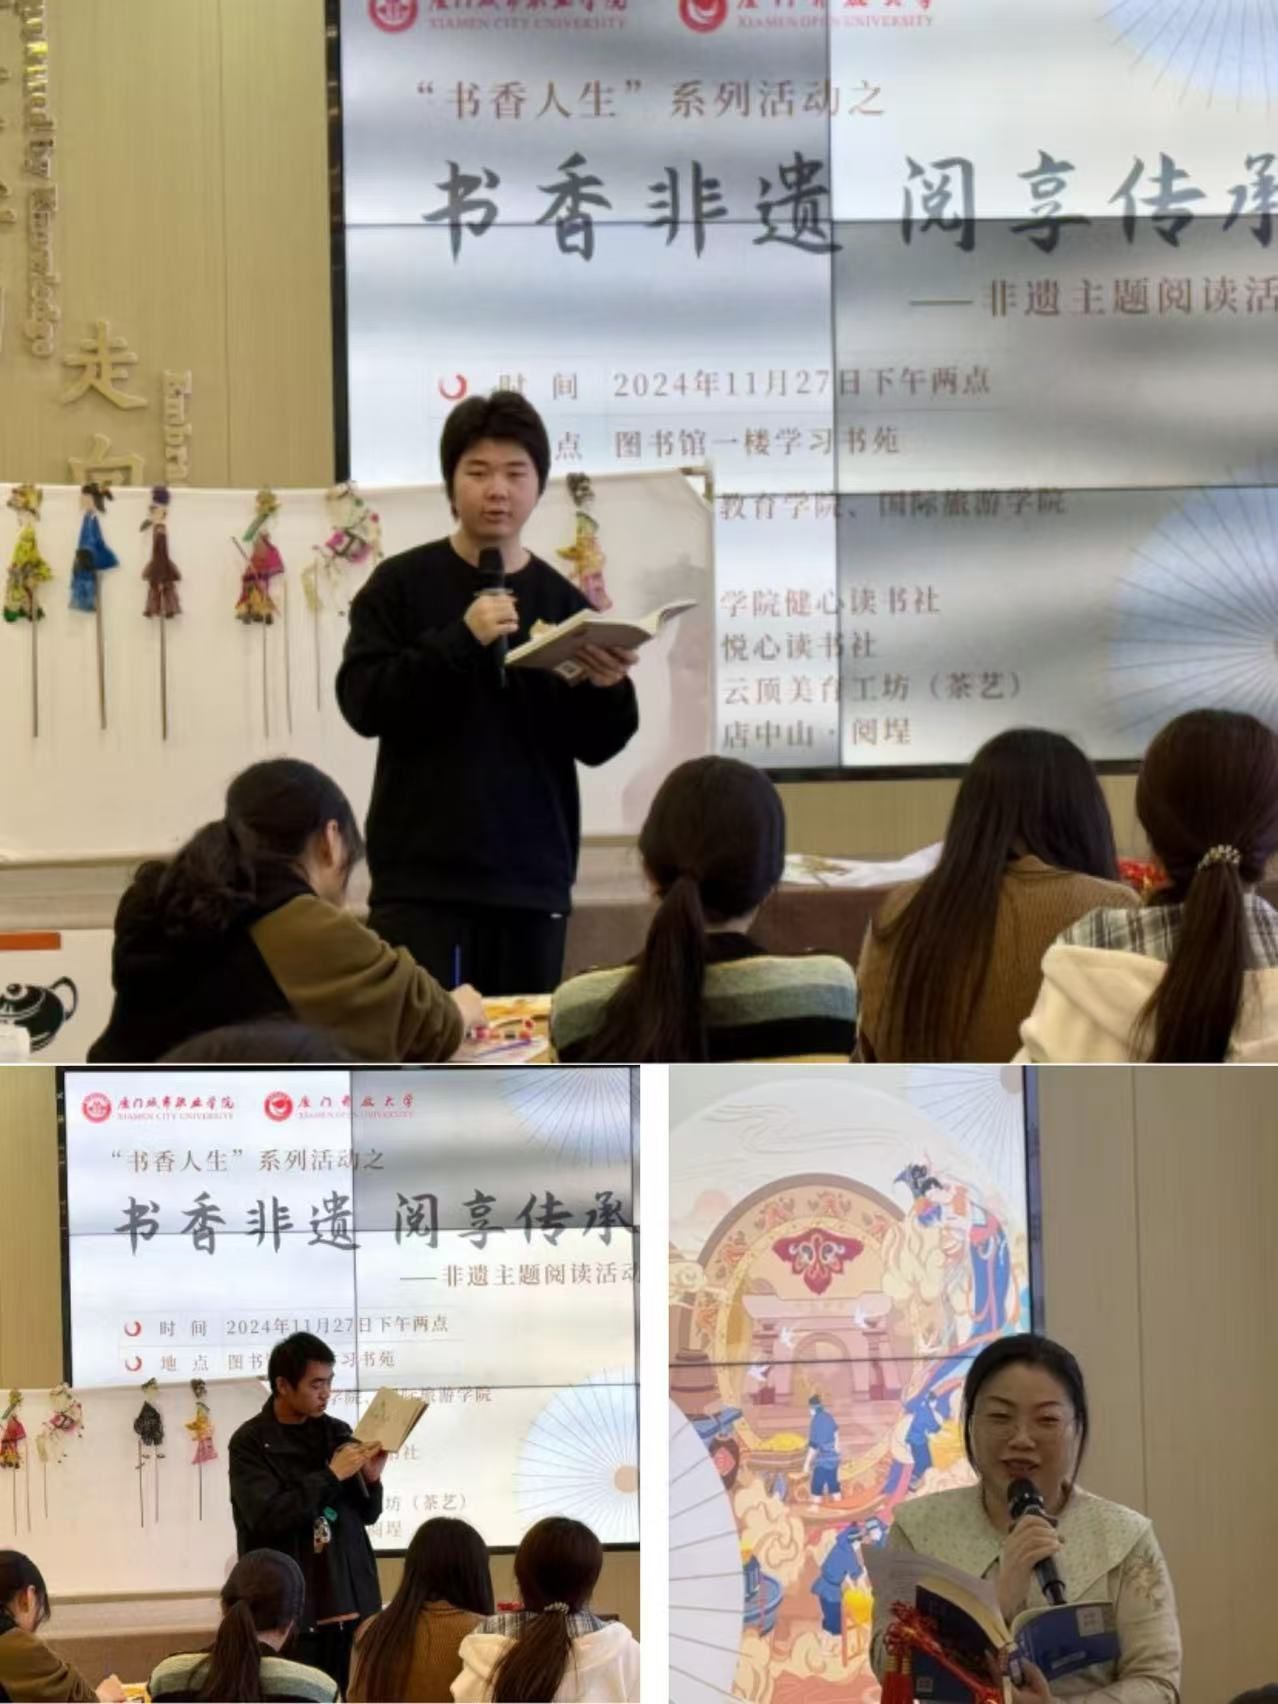 厦门城市职业学院
XIAMEN CITY UNIVERSITY
厦门开放大学
XIAMEN OPEN UNIVERSITY
“书香人生”系列活动之
书香非遗 阅享传承
——非遗主题阅读活
时 间 2024年11月27日下午两点
点 图书馆一楼学习书苑
教育学院、国际旅游学院
学院健心读书社
悦心读书社
云顶美育工坊（茶艺）
店中山·阅埕
走
向
厦门城市职业学院
XIAMEN CITY UNIVERSITY
厦门开放大学
XIAMEN OPEN UNIVERSITY
“书香人生”系列活动之
书香非遗 阅享传承
——非遗主题阅读活动
时 间 2024年11月27日下午两点
地 点 图书 习书苑
学院、国际旅游学院
书社
坊（茶艺）
阅埕